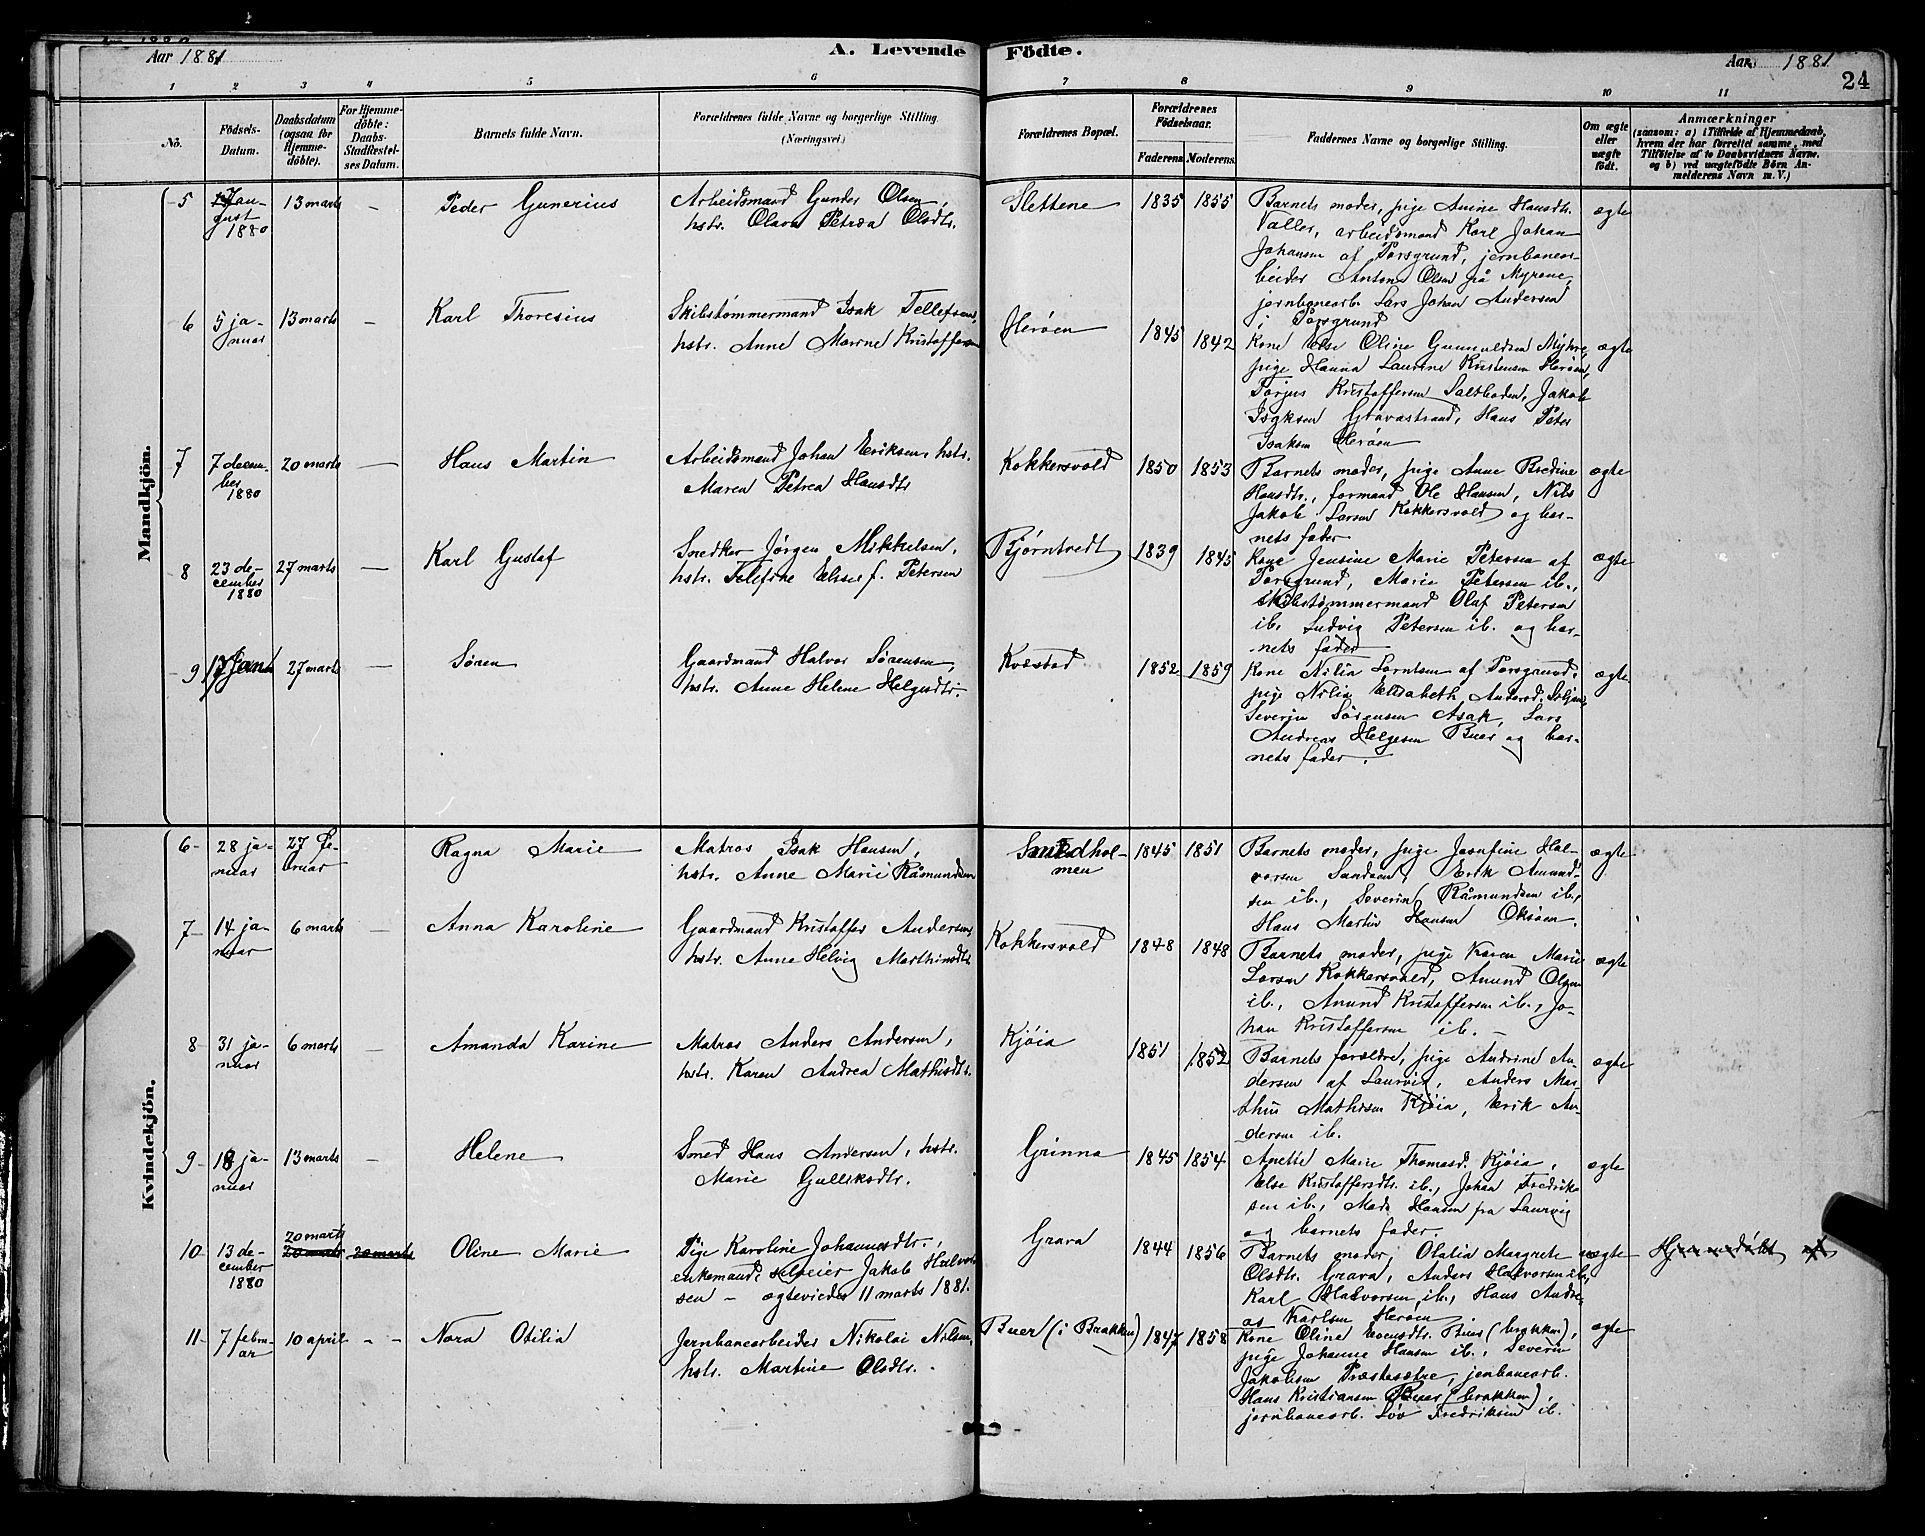 Aar 1881
A. Levende Födte.
Aar 1881
24
1 2 3 4 5 6 7 8 9 10 11
No.
Födsels-
Datum.
Daabsdatum
(ogsaa for
Hjemme-
döbte).
For Hjemme-
döbte:
Daabs-
Stadfæstel-
ses Datum.
Barnets fulde Navn.
Forældrenes fulde Navne og borgerlige Stilling
(Næringsvei)
Forældrenes Bopæl.
Forældrenes
Födselsaar.
Faderens
Moderens
Faddernes Navne og borgerlige Stilling.
Om ægte
eller
uægte
födt.
Anmærkninger
(saasom: a) i Tilfælde af Hjemmedaab,
hvem der har forrettet samme, med
Tilföielse af to Daabsvidners Navne.
og b) ved uægtefödte Börn An-
melderens Navn m. V.)
Mandkjön.
5
gust
1880
13 marts
—
Peder Gunerius
Arbeidsmand Gunder Olsen,
hstr. Olava Petrea Olsdtr.
Slettene
1835
1855
Barnets moder, pige Anine Hansdtr.
Valler, arbeidsmand Karl Johan
Johansen af Porsgrund, jernbanear-
beider Anton Olsen frå Myrene,
jernbanearb. Lars Johan Andersen
i Porsgrund
ægte
6
5 ja-
nuar
13 marts
—
Karl Thoresius
Skibstømmermand Isak Tellefsen,
hstr. Anne Marne Kristoffersen
Herøen
1845
1842
Kone Else Oline Gunnuldsen Myhre,
pige Hanna Laurine Kristensen Herøen,
Torjus Kristoffersen Saltboden, Jakob
Isaksen Gravastrand, Hans Peter
Isaksen Herøen
ægte
7
7 decem-
ber
1880
20 marts
—
Hans Martin
Arbeidsmand Johan Eriksen, hstr.
Maren Petrea Hansdtr
Kokkersvold
1850
1853
Barnets moder, pige Anne Bredine
Hansdtr., formand Ole Hansen, Nils
Jakob Larsen Kokkersvold og bar-
nets fader
ægte
8
23 de-
cember
1880
27 marts
—
Karl Gustaf
Snedker Jørgen Mikkelsen,
hstr. Telefine Elise f. Petersen
Bjørntvedt
1839
1845
Kone Jensine Marie Petersen af
Porsgrund, Marie Petersen ib.,
skibstømmermand Olaf Petersen
ib. Ludvig Petersen ib. og bar-
nets fader
ægte
9
27 marts
—
Søren
Gaardmand Halvor Sørensen,
hstr. Anne Helene Helgesdtr.
Kvæstad
1852
1859
Kone Nilia Lorntsen af Porsgrund,
pige Nilia Elisabeth
Severin Sørensen Asak, Lars
Andreas Helgesen Buer og bar-
nets fader.
ægte
Kvindekjön.
6
28 ja-
nuar
27 fe-
bruar
Ragna Marie
Matros Isak Hansen,
hstr. Anne Marie Råmundsen
Smedhol-
men
1845
1851
Barnets moder, pige Josefine Hal-
vorsen Sandøen, Erik Amund-
sen ib., Severin Råmundsen ib.,
Hans Martin Hansen Oksøen.
ægte
7
14 ja-
nuar
6 marts
—
Anna Karoline
Gaardmand Kristoffer Andersen,
hstr. Anne Helvig Marthinsdtr
Kokkersvold
1848
1848
Barnets moder, pige Karen Marie
Larsen Kokkersvold, Amund Olsen
ib., Amund Kristoffersen ib., Jo-
han Kristoffersen ib. –
ægte
8
31 ja-
nuar
6 marts
—
Amanda Karine
Matros Anders Andersen,
hstr. Karen Andrea Mathisdtr.
Kjøia
1851
1852
Barnets forældre, pige Andrine An-
dersen af Laurvig, Anders Mar-
thin Mathisen Kjøia, Erik An-
dersen ib.
ægte
9
18 ja-
nuar
13 marts
—
Helene
Smed Hans Andersen, hstr.
Marie Gulliksdtr.
Grinna
1845
1854
Anette Marie Thomasd. Kjøia,
Else Kristoffersdtr. ib., Johan Fredrik-
sen ib., Mads Hansen fra Laurvig
og barnets fader.
ægte
10
13 de-
cember
1880
20 marts
20 marts
20 marts
Oline Marie
Pige Karoline Johannesdtr.,
enkemand, selveier Jakob Halvor-
sen – ægteviedes 11 marts 1881.
Grava
1844
1856
Barnets moder, Olalia Margrete
Olsdtr. Grava, Anders Halvorsen ib.,
Karl Halvorsen, ib., Hans Andre-
as Karlsen Herøen
uægte
Hjemmedøbt af
11
7 febru-
ar
10 april
– –
Nora Otilia
Jernbanearbeider Nikolai Nilsen,
hstr. Martine Olsdtr.
Buer (i Brakken)
1847
1858
Kone Oline Evensdtr. Buer (brakken),
pige Johanne Hansen ib., Severin
Jakobsen Præstesætre, jernbanearb.
Hans Kristiansen Buer (brakken),
jernbanearb. Løv Fredriksen ib.
ægte